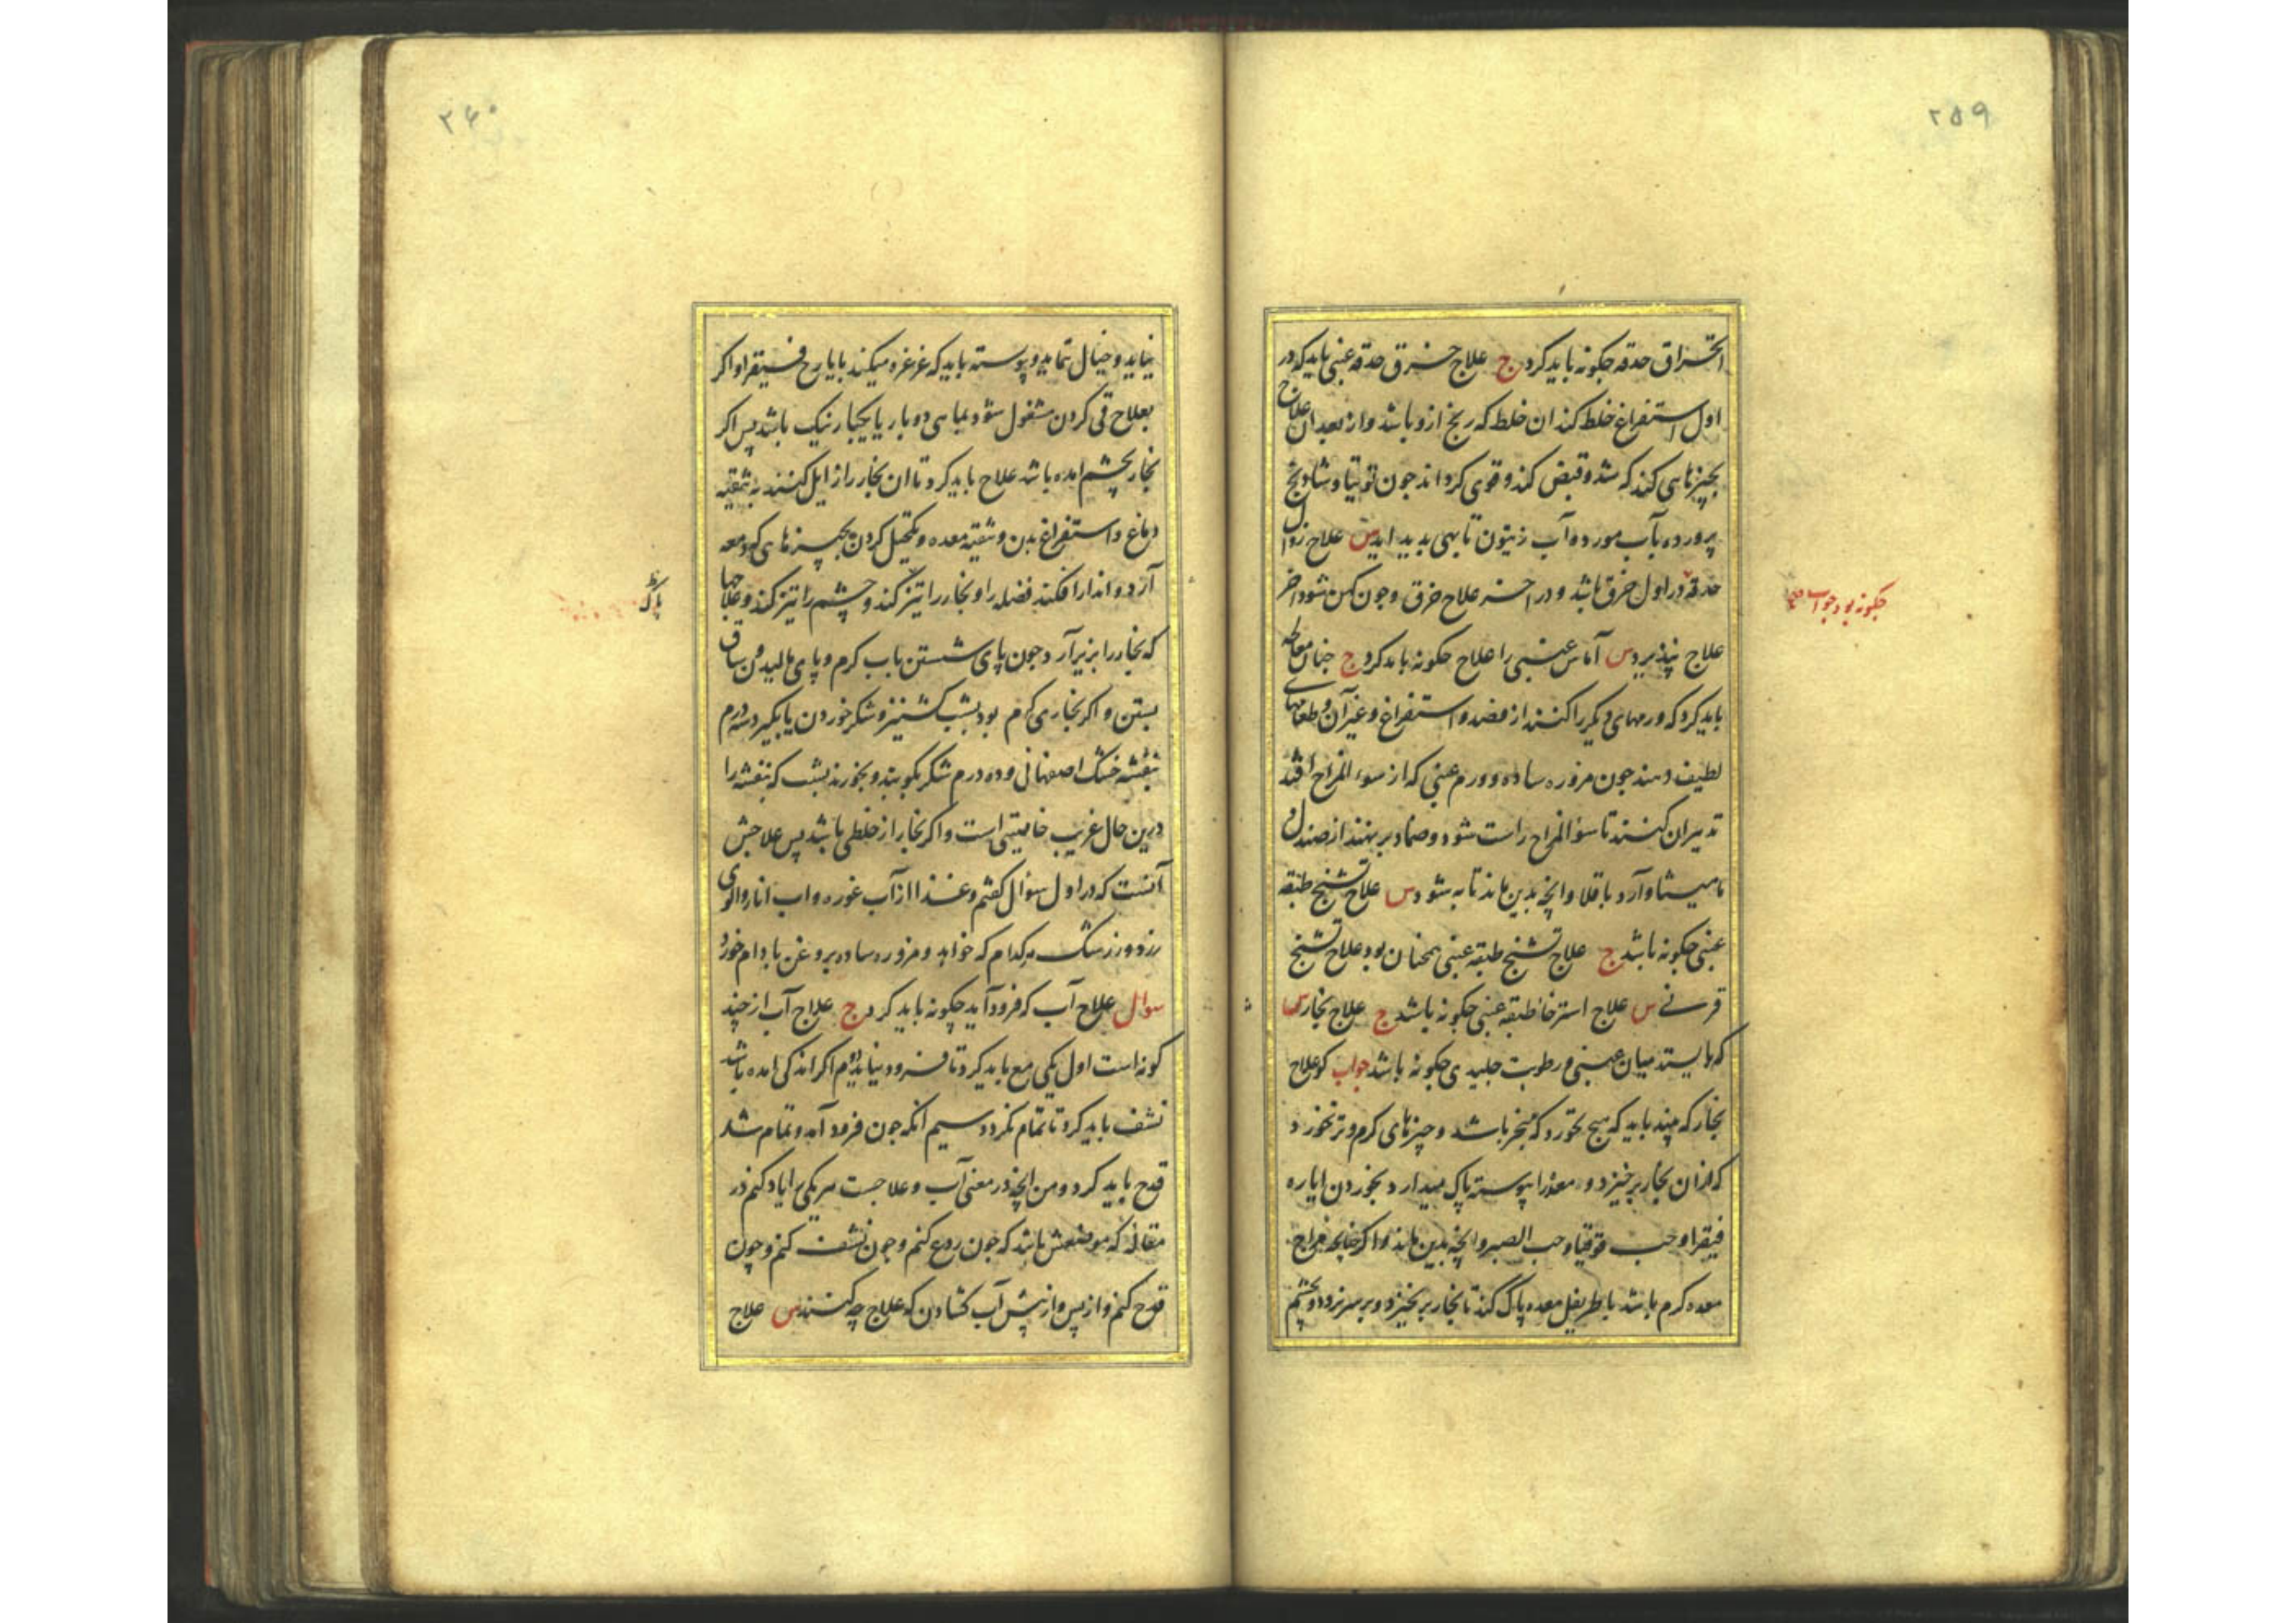 ۲۵۹
انخراق حدقه جکونه باید کرد ج علاج خرق حدقه عنبی باید که در
اول استفراغ خلط کند ان خلط که رنج ازو باشد و از بعد ان علاج
بجیزهای کند که شد و قبض کند و قوی کرداند جون توتیا و شادنج
پرورده بآب مورد و آب زیتون تا بهی بدید اید س علاج زوال
حدقه در اول خرق باشد و در اخر علاج خرق و جون کهن شود اخر
جکونه بود جواب
علاج نپذیرد س آماس عنبی را علاج جکونه باید کرد ج جنان معالجه
باید کرد که ورمهای دیکر را کنند از فصد و استفراغ و غیر آن و طعامهای
لطیف دهند جون مزوره ساده و ورم عنبی که از سوء المزاج افتد
تدبیر ان کنند تا سؤ المزاج راست شود و ضماد بر نهند از صندل و
مامیثا و آرد باقلا و انچه بدین ماند تا به شود س علاج تشنج طبقه
عنبی جکونه باشد ج علاج تشنج طبقه عنبی همچنان بود علاج تشنج
قرنی س علاج استرخا طبقه عنبی جکونه باشد ج علاج بخار س
که بایستد میان عنبی و رطوبت جلیدی جکونه باشد جواب کو علاج
بخار که بیند باید که هیج نخورد که مبخر باشد و جیزهای کرم و تر نخورد
که از ان بخار برخیزد و معده را پیوسته پاک میدارد بخوردن ایاره
فیقرا و حب قوقیا و حب الصبر و انچه بدین ماند و اکر جنانجه مزاج
معده کرم باشد باطریفل معده پاک کند تا بخار برنخیزد و بر سر نرود و بچشم
۲۶۰
نیاید و خیال ننماید و پیوسته باید که غرغره میکند بایارج فیقرا و اکر
بعلاج قی کردن مشغول شود بماهی دو بار یا یکبار نیک باشد پس اکر
بخار بچشم امده باشد علاج باید کرد تا ان بخار را زایل کنند به تنقیه
دماغ و استفراغ بدن و تنقیه معده و تکحیل کردن بجیزهای که دمعه
آرد و اندر افکند فضله را و بخار را تیز کند و چشم را تیز کند و علاجها
پاک
که بخار را بزیر آرد جون پای شستن باب کرم و پای مالیدن و ساق
بستن و اکر بخاری کرم بود بشب کشنیز و شکر خوردن یا بکیرد سه درم
بنفشه خشک اصفهانی و ده درم شکر بکوبند و بخورند بشب که بنفشه را
درین حال غریب خاصیتی است و اکر بخار از خلطی باشد پس علاجش
آنست که در اول سؤال کفتم و غذا از آب غوره و اب انار و الوی
زرد و زرشک هر کدام که خواهد و مزوره ساده بروغن بادام خورد
سوال علاج آب که فرود آید چکونه باید کرد ج علاج آب از جند
کونه است اول یکی منع باید کرد تا فرود نیاید دوم اکر اندکی امده باشد
نشف باید کرد تا تمام نکردد سیم انکه جون فرود آمد و تمام شد
قدح باید کرد و من انچه در معنی آب و علاجست هر یکی را یاد کنم در
مقاله که موضعش باشد که جون ردع کنم و جون نشف کنم و جون
قدح کنم و از پس و از پیش آب کشادن که علاج چه کنند س علاج